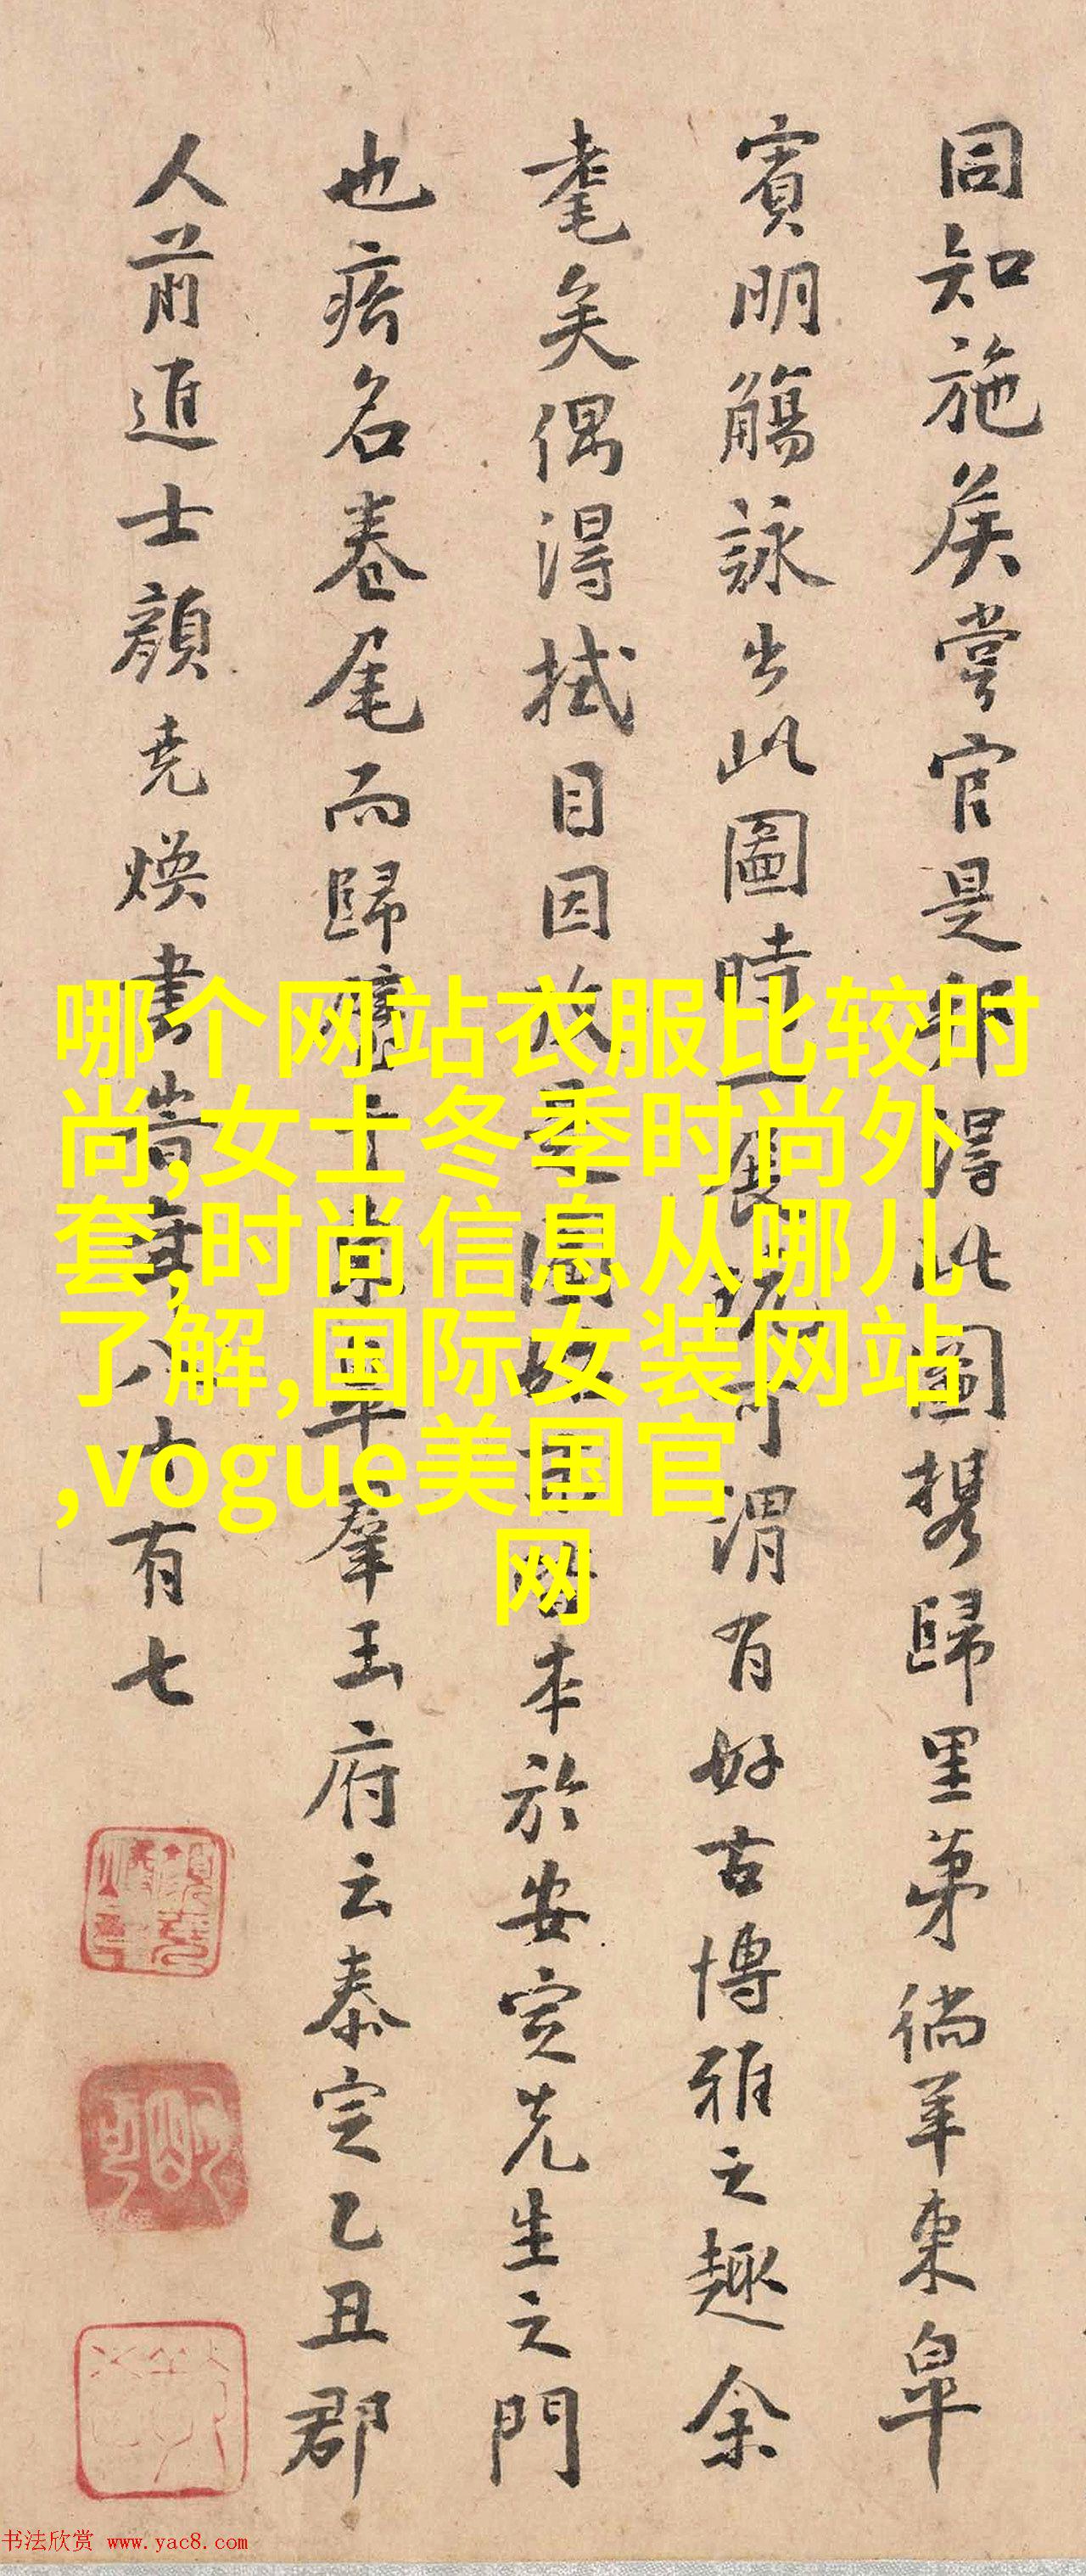 同知施侯嘗官是邦得此圖携歸里第徜羊東皐
賓明觴詠出此圖時一展玩可謂有好古博雅之趣余
耄矣偶得拭目因故
本於安定先生之門
也瘩名卷尾而歸
羣玉府云泰定乙丑郡
人前進士顔堯煥書時年八十有七
哪个网站衣服比较时
尚,女士冬季时尚外
套,时尚信息从哪儿
了解,国际女装网站
,vogue美国官
网
书法欣赏 www.yac8.com